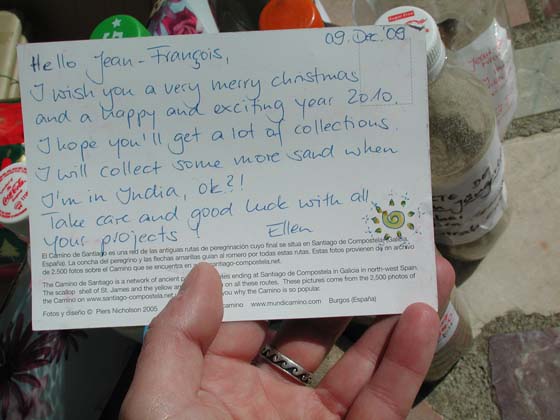 09. Dec. '09
Hello Jean-François,
I wish you a very merry christmas
and a happy and exciting year 2010.
I hope you'll get a lot of collections.
I will collect some more sand when
I'm in India, ok?!
Take care and good luck with all
your projects!
Ellen
El Camino de Santiago es una red de las antiguas rutas de peregrinación cuyo final se situa en Santiago de Compostela, Galicia,
España. La concha del peregrino y las flechas amarillas guian al romero por todas estas rutas. Estas fotos provienen de un archivo
de 2,500 fotos sobre el Camino que se encuentra en santiago-compostela.net.
The Camino de Santiago is a network of ancient ending at Santiago de Compostela in Galicia in north-west Spain.
The scallop shell of St. James and the yellow on all these routes. These pictures come from the 2,500 photos of
the Camino on www.santiago-compostela.net you why the Camino is so popular.
Fotos y diseño © Piers Nicholson 2005 camino www.mundicamino.com Burgos (España)